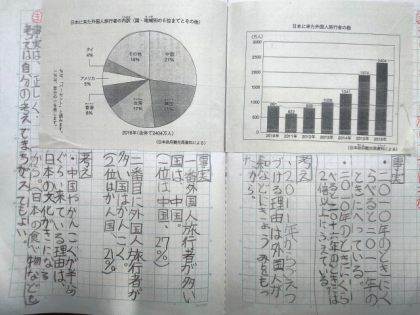 日本に来た外国人旅行者の内訳（国・地域別の5位までとその他）
その他
中国
27%
韓国
21%
台湾
17%
香港
8%
アメリカ
5%
タイ
4%
2016年（全体で2404万人）
（日本政府観光局資料による）
日本に来た外国人旅行者の数
（万人）
3000
2500
2000
1500
1000
500
0
2404
2010年
2011年
2012年
2013年
2014年
2015年
2016年
（日本政府観光局資料による）
事実
・二〇一〇年のときに
くらべると二〇一一年の
ときにへっている。
・二〇一〇年のときにくら
べると二〇一六年のときは
2倍以上にふえている。
考え
・二〇一一年からふえつ
づける理由は外国人が
和
から。
事実
一番外国人旅行者が多い
国は、中国。
（一位は中国、27%）
二番目に外国人旅行者が
多い国はかんこく。
（2位はかん国、21%）
考え
・中国やかんこくが半分
ぐらい来ている理由は、
日本の文化がきになる
から。（日本の食べ物なども
事実は、正しく、
考えは自分の考えでまちがえてもよい。